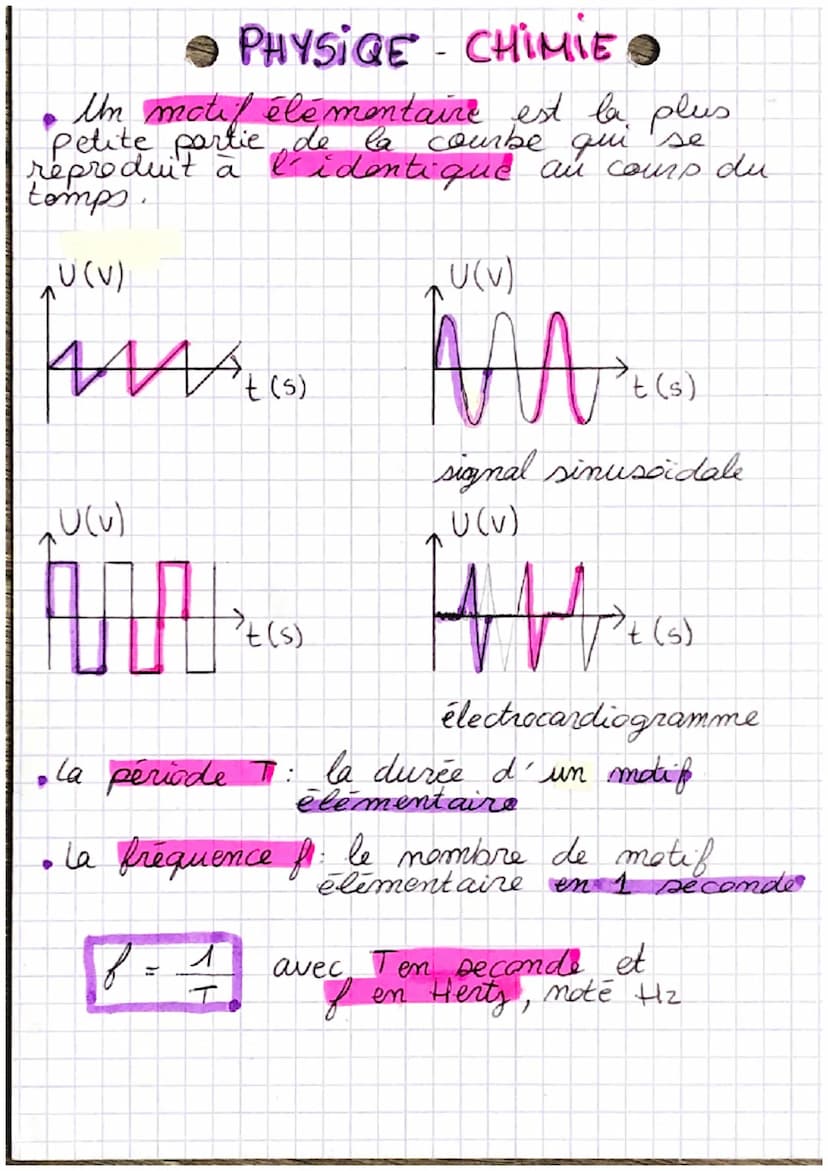 PHYSIQE - CHIMIE
• Un motif élémentaire est la plus
petite partie de la courbe qui se
reproduit à l'identique au cours du
temps.
U(V)
t(s)
U(V)
t(s)
signal sinusoïdale
U(V)
t(s)
U(V)
t(s)
électrocardiogramme
• La période T : la durée d'un motif
élémentaire
• La fréquence f : le nombre de motif
élémentaire en 1 seconde
f = 1/T avec T en seconde et
f en Hertz, noté Hz